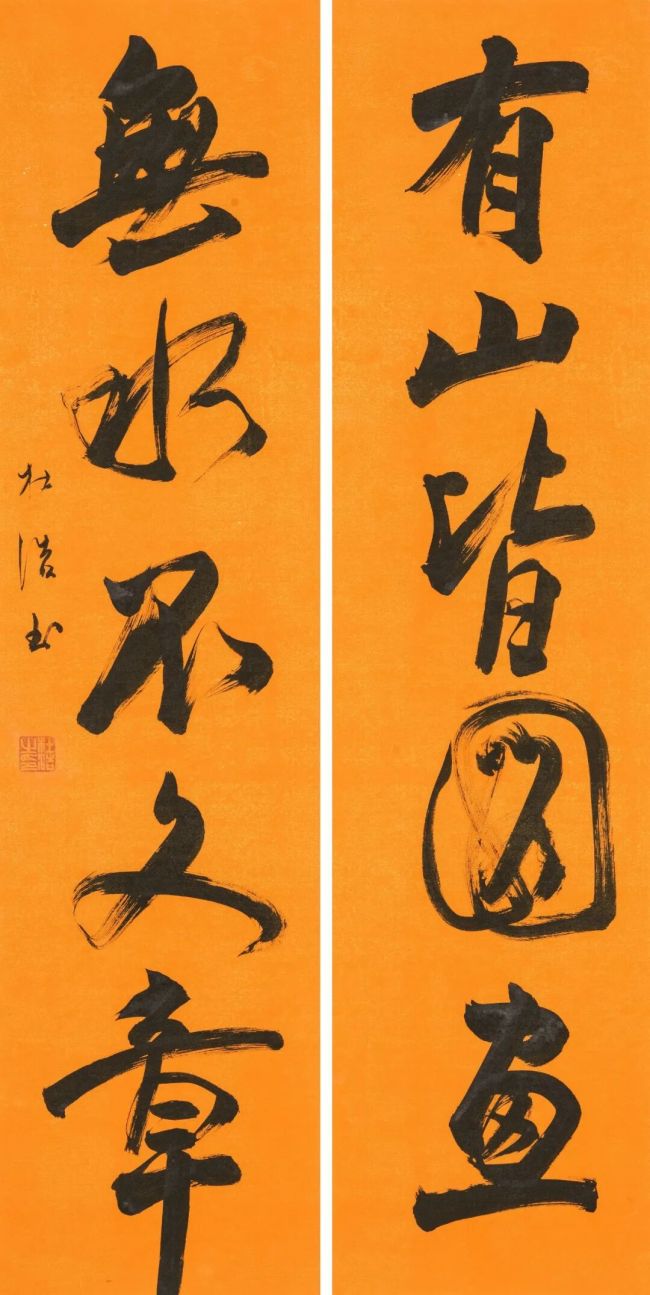 有山皆圖畫
無水不文章
杜浩書